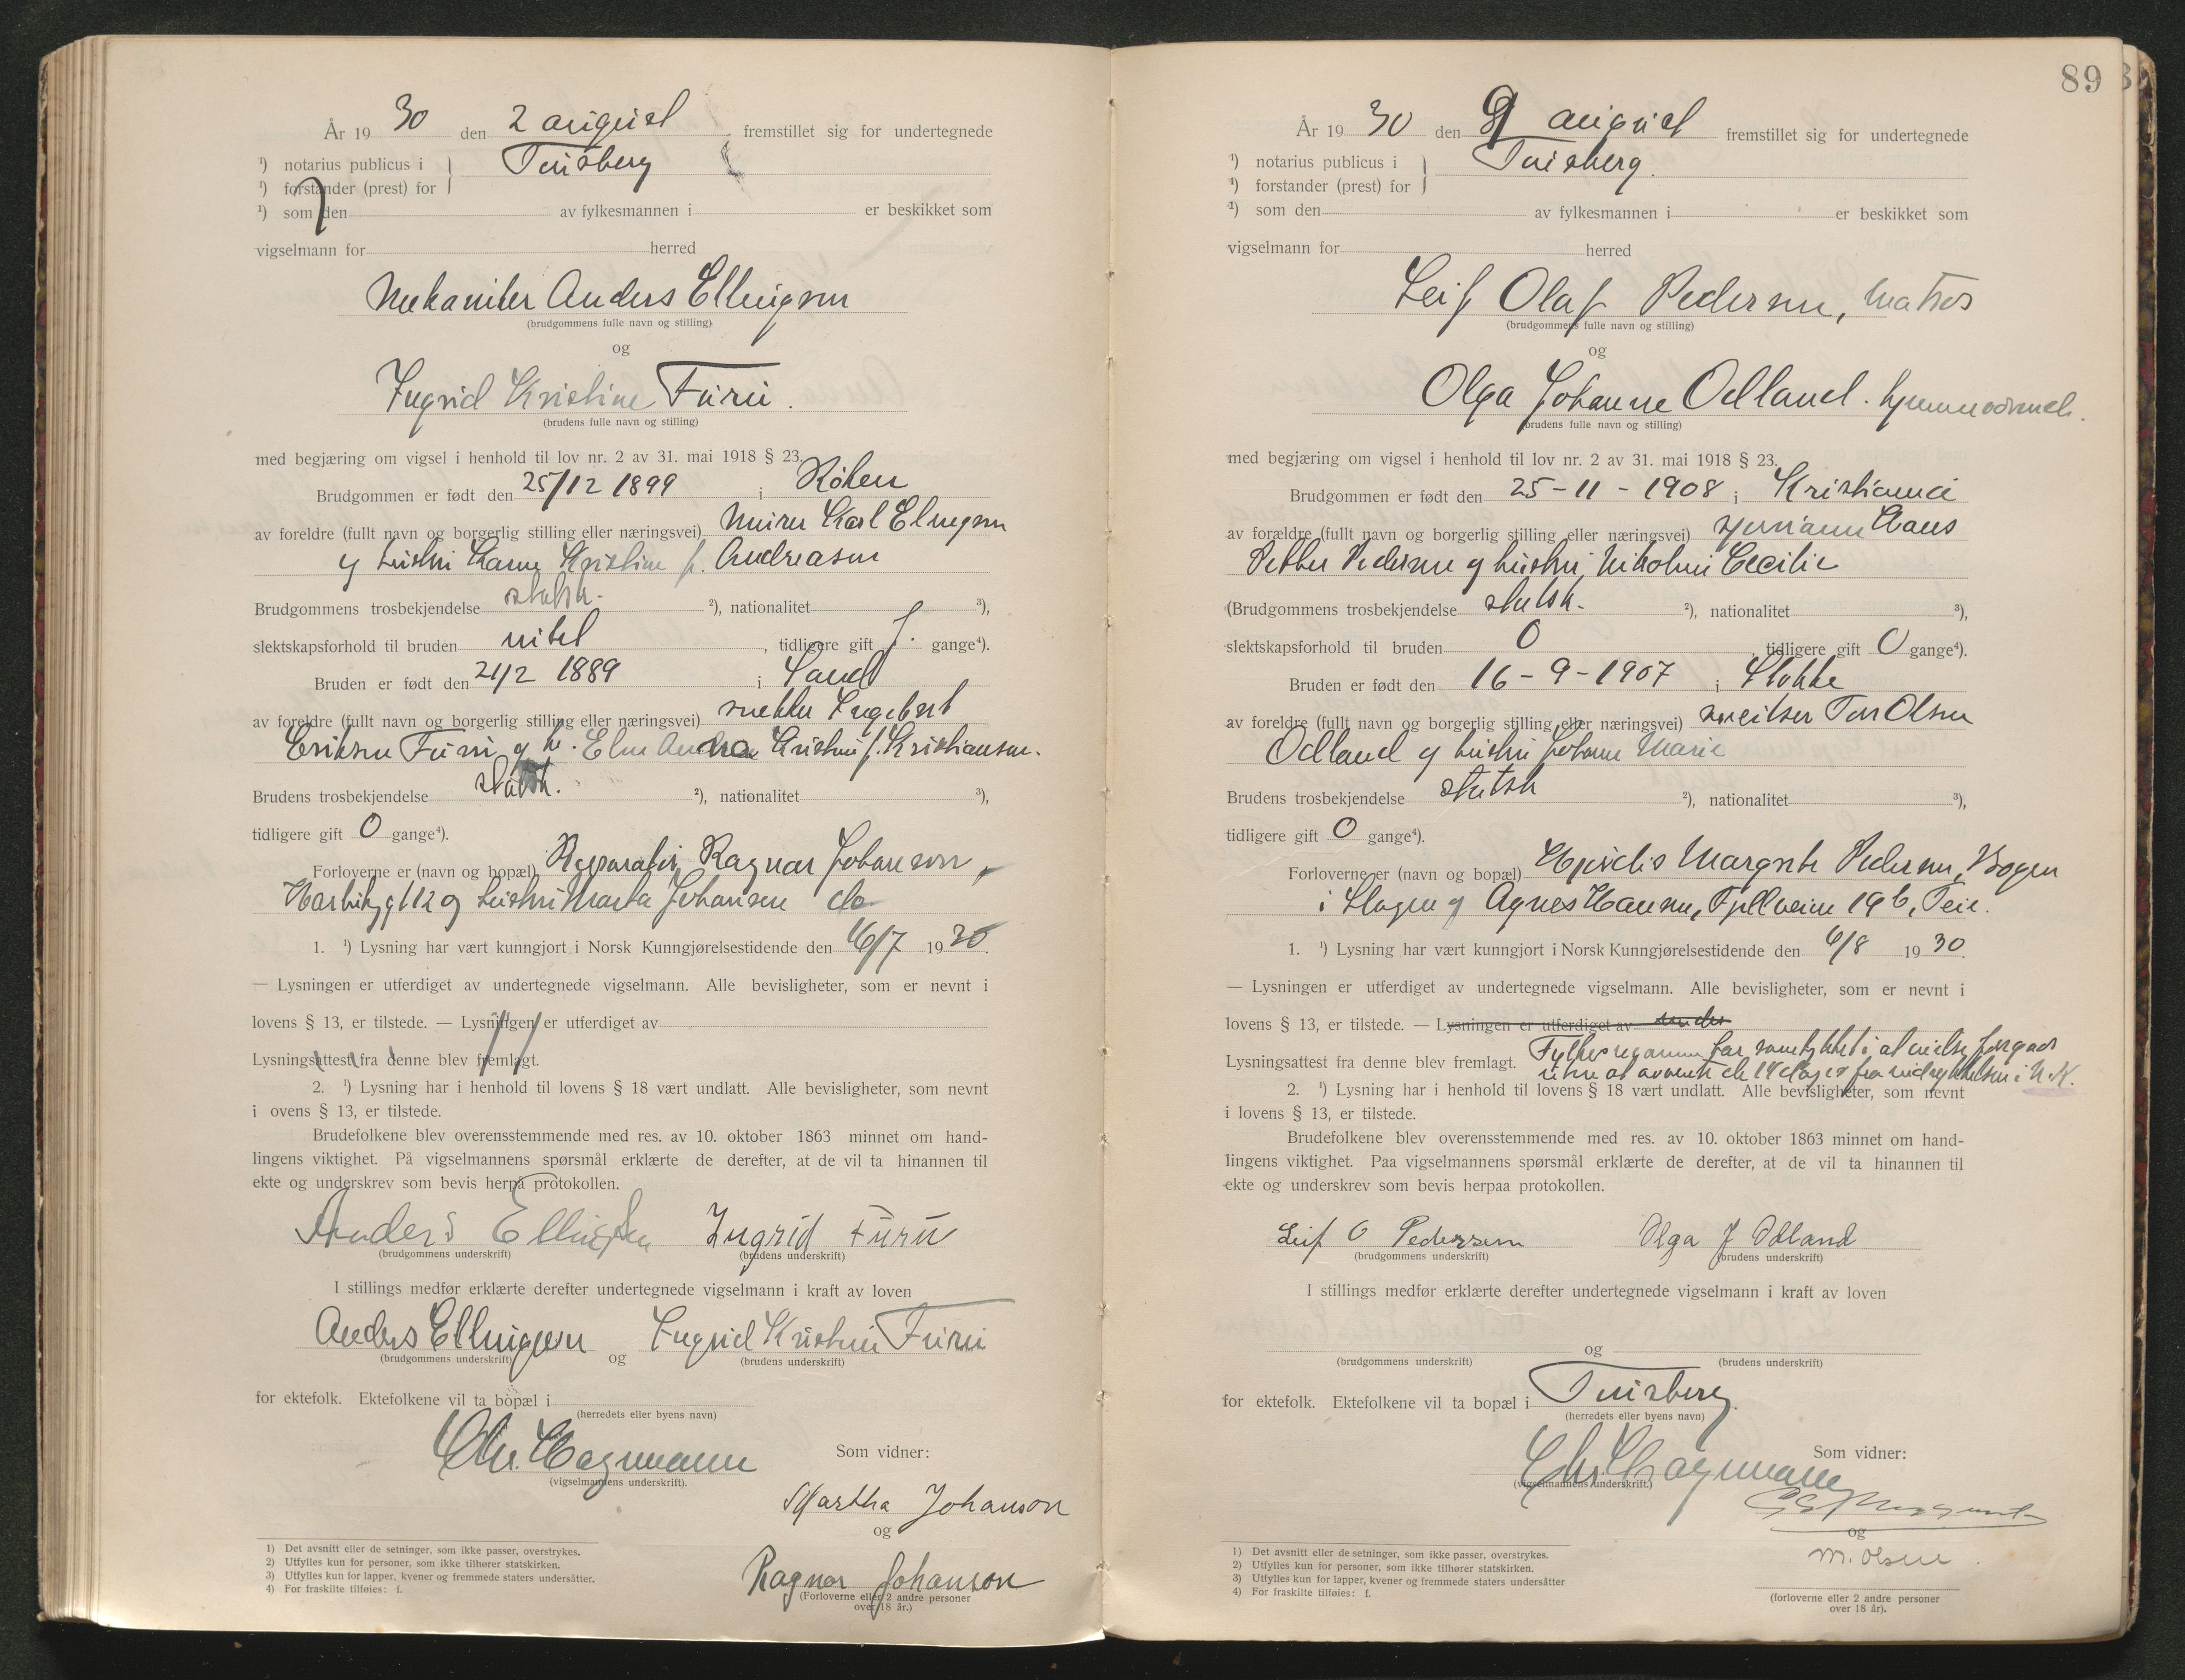 År 1930 den 2 august fremstillet sig for undertegnede
¹) notarius publicus i Tønsberg
¹) forstander (prest) for
¹) som den av fylkesmannen i er beskikket som
vigselmann for herred
Mekaniker Anders Ellingsen
(brudgommens fulle navn og stilling)
og
Ingrid Kristine Furu.
(brudens fulle navn og stilling)
med begjæring om vigsel i henhold til lov nr. 2 av 31. mai 1918 § 23.
Brudgommen er født den 25/12 1899 i Røken
av foreldre (fullt navn og borgerlig stilling eller næringsvei) Murer Karl Ellingsen
og hustru Karen Kristine f. Andreasen
Brudgommens trosbekjendelse statsk. ²), nationalitet ³),
slektskapsforhold til bruden intet, tidligere gift gange⁴).
Bruden er født den 21/2 1889 i Sand
av foreldre (fullt navn og borgerlig stilling eller næringsvei) snekker Ingebret
Eriksen Furu og h. Kristiansen.
Brudens trosbekjendelse statsk. ²), nationalitet ³),
tidligere gift 0 gange⁴).
Forloverne er (navn og bopæl) Reparatør Ragnar Johanson,
112 og hustru Marta Johansen do
1. ¹) Lysning har vært kunngjort i Norsk Kunngjørelsestidende den 16/7 1930.
— Lysningen er utferdiget av undertegnede vigselmann. Alle bevisligheter, som er nevnt i
lovens § 13, er tilstede. — Lysningen er utferdiget av
Lysningsattest fra denne blev fremlagt.
2. ¹) Lysning har i henhold til lovens § 18 vært undlatt. Alle bevisligheter, som nevnt
i ovens § 13, er tilstede.
Brudefolkene blev overensstemmende med res. av 10. oktober 1863 minnet om hand-
lingens viktighet. På vigselmannens spørsmål erklærte de derefter, at de vil ta hinannen til
ekte og underskrev som bevis herpå protokollen.
Anders Ellingsen Ingrid Furu
(brudgommens underskrift) (brudens underskrift)
I stillings medfør erklærte derefter undertegnede vigselmann i kraft av loven
Anders Ellingsen og Ingrid Kristine Furu
(brudgommens underskrift) (brudens underskrift)
for ektefolk. Ektefolkene vil ta bopæl i
(herredets eller byens navn)
Chr. Hagemann
(vigselmannens underskrift).
Som vidner:
Martha Johanson
og
Ragnar Johanson
(Forloverne eller 2 andre personer
over 18 år.)
1) Det avsnitt eller de setninger, som ikke passer, overstrykes.
2) Utfylles kun for personer, som ikke tilhører statskirken.
3) Utfylles kun for lapper, kvener og fremmede staters undersåtter.
4) For fraskilte tilføies: f.
89
År 1930 den 9 august fremstillet sig for undertegnede
¹) notarius publicus i Tønsberg.
¹) forstander (prest) for
¹) som den av fylkesmannen i er beskikket som
vigselmann for herred
Leif Olaf Pedersen, matros
(brudgommens fulle navn og stilling)
og
Olga Johanne Odland. hjemmeværende.
(brudens fulle navn og stilling)
med begjæring om vigsel i henhold til lov nr. 2 av 31. mai 1918 § 23.
Brudgommen er født den 25-11-1908 i Kristiania
av forældre (fullt navn og borgerlig stilling eller næringsvei) sjømann Claus
Petter Pedersen og hustru Nikoline Cecilie
(Brudgommens trosbekjendelse statsk. ²), nationalitet ³),
slektskapsforhold til bruden 0, tidligere gift 0 gange⁴).
Bruden er født den 16-9-1907 i Stokke
av foreldre (fullt navn og borgerlig stilling eller næringsvei) sveitser Tor Olsen
Odland og hustru Johanne Marie
Brudens trosbekjendelse statsk ²), nationalitet ³),
tidligere gift 0 gange⁴).
Forloverne er (navn og bopæl) Hjørdis Margrete Pedersen, Bogen
i Slagen og Agnes Hansen, Fjellveien 19b, Teie.
1. ¹) Lysning har vært kunngjort i Norsk Kunngjørelsestidende den 6/8 1930.
— Lysningen er utferdiget av undertegnede vigselmann. Alle bevisligheter, som er nevnt i
lovens § 13, er tilstede. — Lysningen er utferdiget av under
Lysningsattest fra denne blev fremlagt. Fylkesmannen har samtykket i, at vielse foregaar
uten at avvente de 14 dager fra indrykkelsen i N. K.
2. ¹) Lysning har i henhold til lovens § 18 vært undlatt. Alle bevisligheter, som nevnt
i lovens § 13, er tilstede.
Brudefolkene blev overensstemmende med res. av 10. oktober 1863 minnet om hand-
lingens viktighet. Paa vigselmannens spørsmål erklærte de derefter, at de vil ta hinannen til
ekte og underskrev som bevis herpaa protokollen.
Leif O Pedersen Olga J Odland
(brudgommens underskrift) (brudens underskrift)
I stillings medfør erklærte derefter undertegnede vigselmann i kraft av loven
og
(brudgommens underskrift) (brudens underskrift)
for ektefolk. Ektefolkene vil ta bopæl i Tønsberg.
(herredets eller byens navn)
Chr. Hagemann
(vigselmannens underskrift.)
Som vidner:
og
M. Olsen.
(forloverne eller 2 andre personer
over 18 år).
1) Det avsnitt eller de setninger, som ikke passer, overstrykes.
2) Utfylles kun for personer, som ikke tilhører statskirken.
3) Utfylles kun for lapper, kvener og fremmede staters undersåtter
4) For fraskilte tilføies: f.